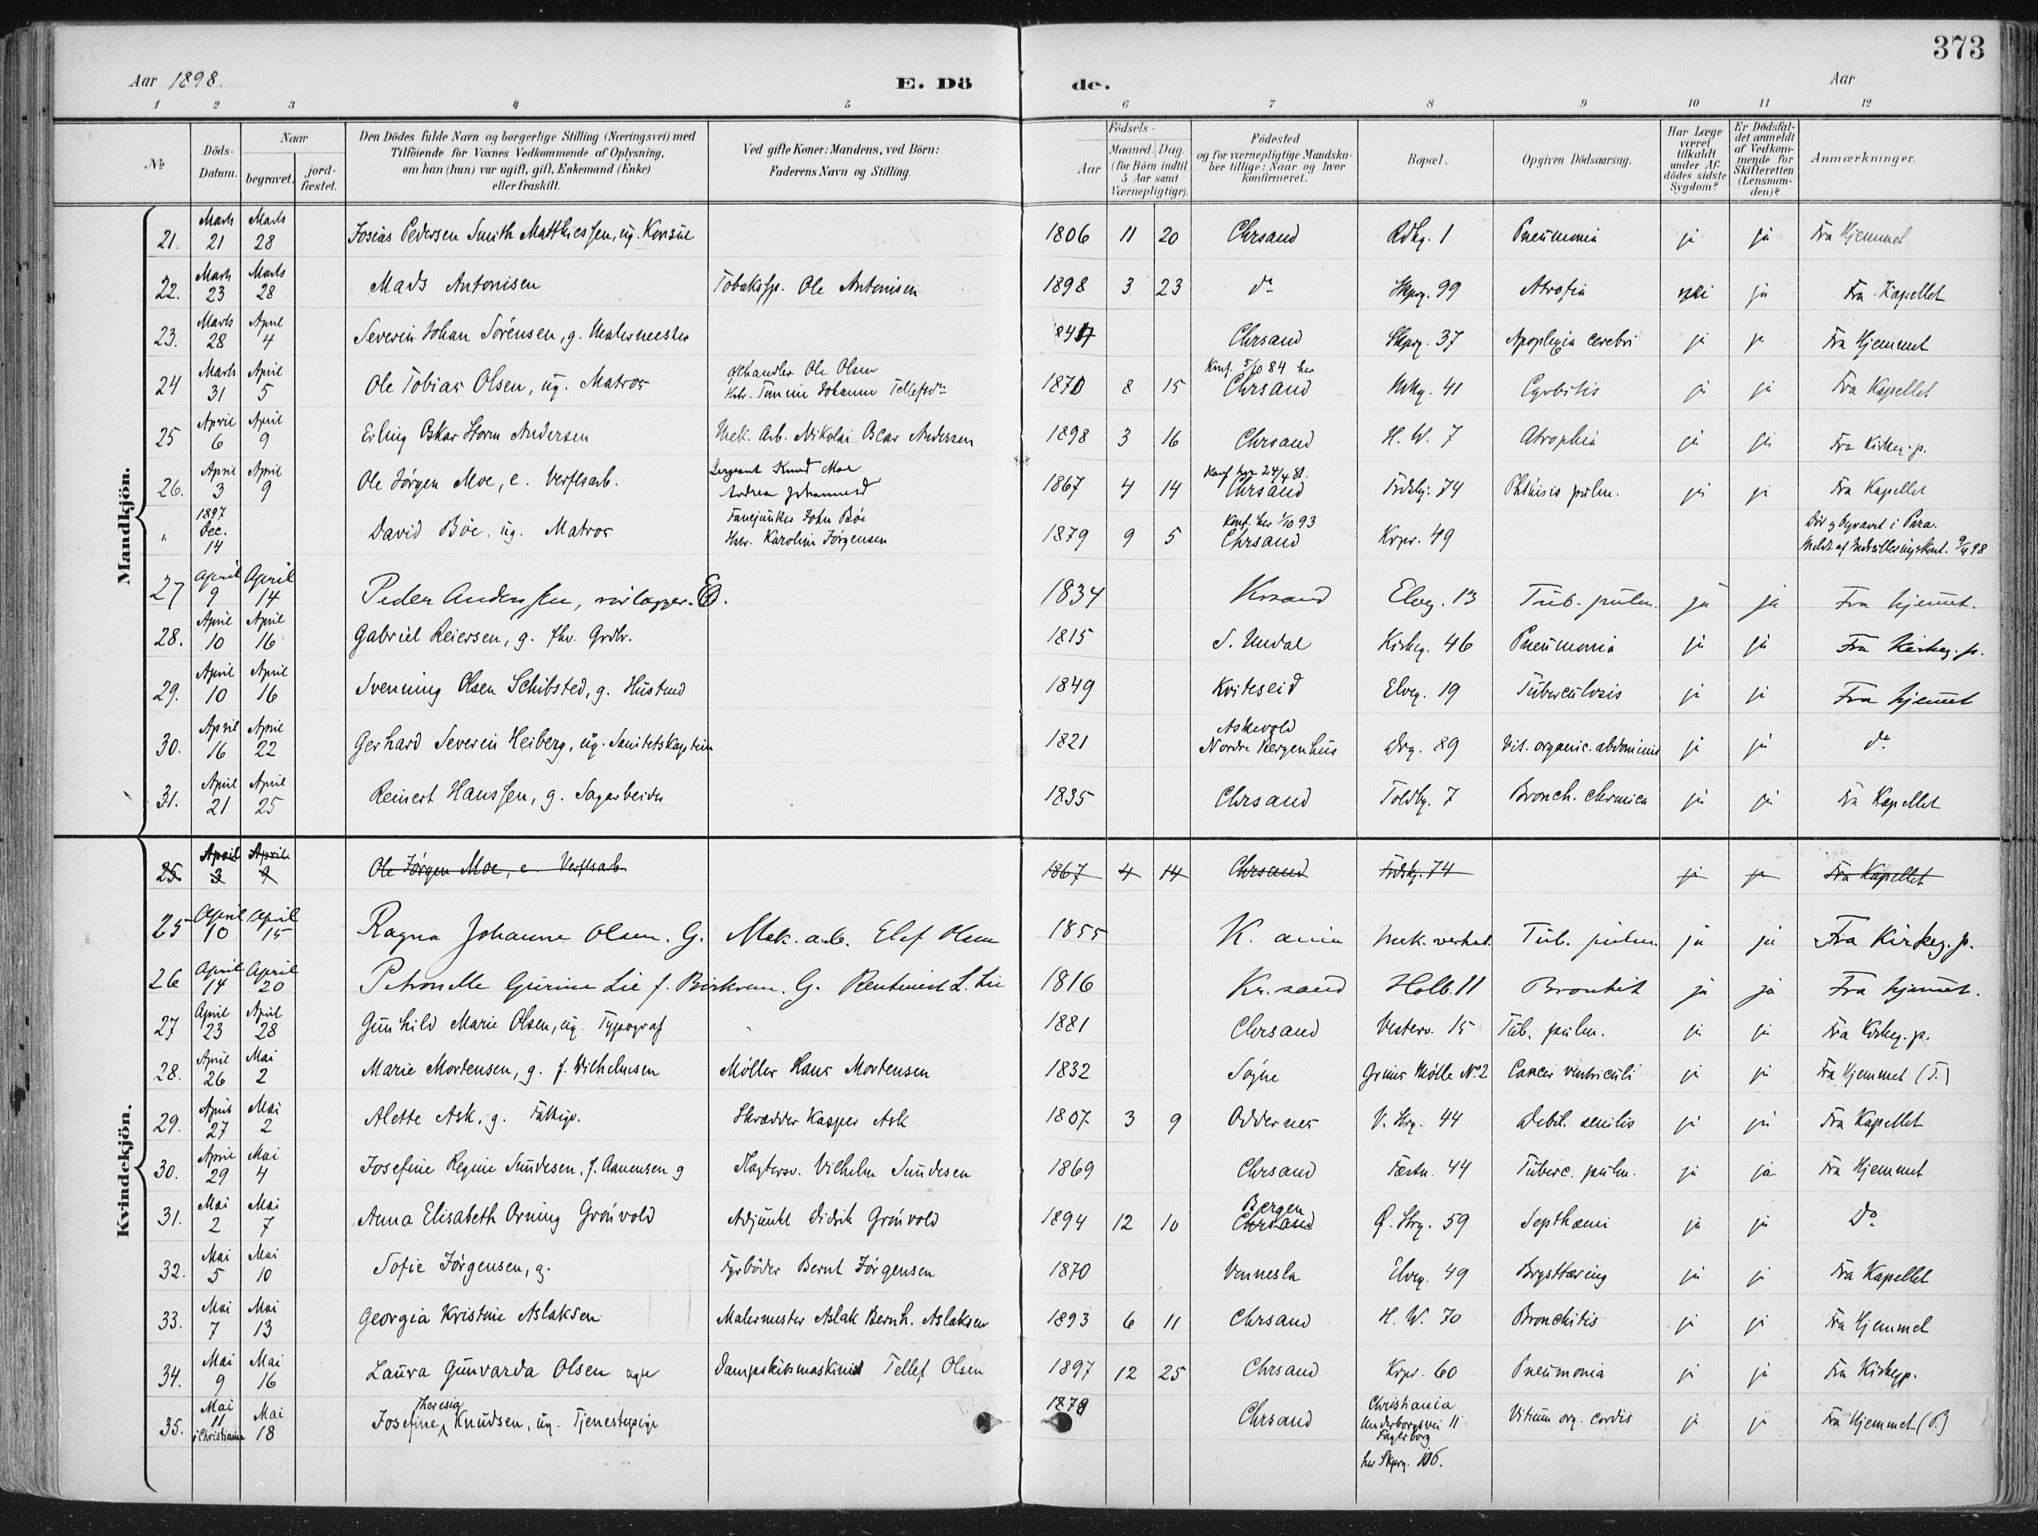 373
Aar 1898.
E. Dö de.
Aar
1 2 3 4 5 6 7 8 9 10 11 12
No
Döds-Datum.
Naar
begravet.
jord-fæstet.
Den Dödes fulde Navn og borgerlige Stilling (Næringsvei) med
Tilföiende for Voxnes Vedkommende af Oplysning,
om han (hun) var ugift, gift, Enkemand (Enke)
eller fraskilt.
Ved gifte Koner: Mandens, ved Börn:
Faderens Navn og Stilling.
Födsels-
Aar
Maaned. Dag.
(for Börn indtil
5 Aar samt
Værnepligtige).
Födested
og for værnepligtige Mandska-
ber tillige: Naar og hvor
konfirmeret.
Bopæl.
Opgiven Dödsaarsag.
Har Læge
været
tilkaldt
under Af-
dödes sidste
Sygdom?
Er Dödsfal-
det anmeldt
af Vedkom-
mende for
Skifteretten
(Lensman-
den)?
Anmærkninger.
Mandkjön.
21. Marts 21 Marts 28 Josias Pedersen Smith Matthiessen, ug. Konsul 1806 11 20 Chrsand Rdhg. 1 Pneumonia ja ja Fra Hjemmet
22. Marts 23 Marts 28 Mads Antonisen Tobakssp. Ole Antonisen 1898 3 23 do Skprg. 99 Atrofia nei ja Fra Kapellet
23. Marts 28 April 4 Severin Johan Sörensen, g. Malermester Chrsand Skprg. 37 Apoplexia cerebri ja ja Fra Hjemmet
24 Marts 31 April 5 Ole Tobias Olsen, ug. Matros Ole Olsen 1870 8 15 Konf. 5/10 84 her Chrsand 41 ja ja Fra Kapellet
25 April 6 April 9 Erling Oskar Storm Andersen Mek. Arb. Nikolai Oscar Andersen 1898 3 16 Chrsand H. W. 7 Atrophia ja ja Fra Kirkeg. p.
26. April 3 April 9 Ole Jörgen Moe, e. Verftsarb. Sergeant Knud Moe 1867 4 14 Chrsand 74 Phthisis pulm. ja ja Fra Kapellet
" 1897 Dec. 14 David Böe, ug. Matros Fanejunker John Böe Hstr. Karoline Jörgensen 1879 9 5 Konf. her 1/10 93 Chrsand Krpr. 49 Död og begravet i Para.
27 April 9 April 14 Peder Anderssen, 1834 Krsand Elveg. 13 Tub. pulm. ja ja Fra hjemmet.
28. April 10 April 16 Gabriel Reiersen, g. fhv. Grdbr. 1815 S. Undal Kirkeg. 46 Pneumonia ja ja Fra Kirkeg. p.
29. April 10 April 16 Svenning Olsen Schibsted, g. Husmd 1849 Kviteseid Elveg. 19 Tuberculosis ja ja Fra hjemmet
30. April 16 April 22 Gerhard Severin Heiberg, ug. Sanitetskaptein 1821 Askevold Nordre Bergenhus Drg. 89 Vit. organic. abdominis ja ja do
31. April 21 April 25 Reinert Hanssen, g. Sagarbeider 1835 Chrsand Toldbg. 7 Bronch. chronica ja ja Fra Kapellet
Kvindekjön.
25 April 3 April 9 Ole Jörgen Moe, e. Verftsarb. 1867 4 14 Chrsand 74 ja ja Fra Kapellet
25 April 10 April 15 Ragna Johanne Olsen. G. Mek. arb. Elef Olsen 1855 K. ania Mek. verkst. Tub. pulm. ja ja Fra Kirkeg. p.
26 April 14 April 20 Petronelle Gurine Lie f. Birkrem. G. Rentenist L. Lie 1816 Kr. sand Holb. 11 Bronkit ja ja Fra hjemmet.
27 April 23 April 28 Gunhild Marie Olsen, ug. Typograf 1881 Chrsand Vesterv. 15 Tub. pulm. ja ja Fra Kirkeg. p.
28. April 26 Mai 2 Marie Mortensen, g. f. Vilhelmsen Möller Hans Mortensen 1832 Sögne Grims Mölle No 2 Cancer ventriculi ja ja Fra Hjemmet (T.)
29. April 27 Mai 2 Alette Ask, g. Fattigv. Skrædder Kasper Ask 1807 3 9 Oddernes V. Strg. 44 Debil. senilis ja ja Fra Kapellet
30. April 29 Mai 4 Josefine Regine Sundesen, f. Aanensen g Vilhelm Sundesen 1869 Chrsand Fæstn. 44 Tuberc. pulm. ja ja Fra Hjemmet
31. Mai 2 Mai 7 Anna Elisabeth Orning Grönvold Adjunkt Didrik Grönvold 1894 12 10 Bergen Chrsand Ø. Strg. 59 Septhæmi ja ja Do
32. Mai 5 Mai 10 Sofie Jörgensen, g. Fyrböder Bernt Jörgensen 1870 Vennesla Elveg. 49 Brysttæring ja ja Fra Kapellet
33. Mai 7 Mai 13 Georgia Kristine Aslaksen Malermester Aslak Bernh. Aslaksen 1893 6 11 Chrsand H. W. 70 Bronchitis ja ja Fra Hjemmet
34. Mai 9 Mai 16 Laura Gunvarda Olsen Dampskibsmaskinist Tellef Olsen 1897 12 25 Chrsand Krpr. 60 Pneumonia ja ja Fra Kirkegp.
35. Mai 11 i Christiania Mai 18 Josefine Theresia Knudsen, ug. Tjenestepige 1878 Chrsand Christiania Underborgsvei 11 Fagerborg her Skprg. 106. Vitium org. cordis ja ja Fra Hjemmet (P.)